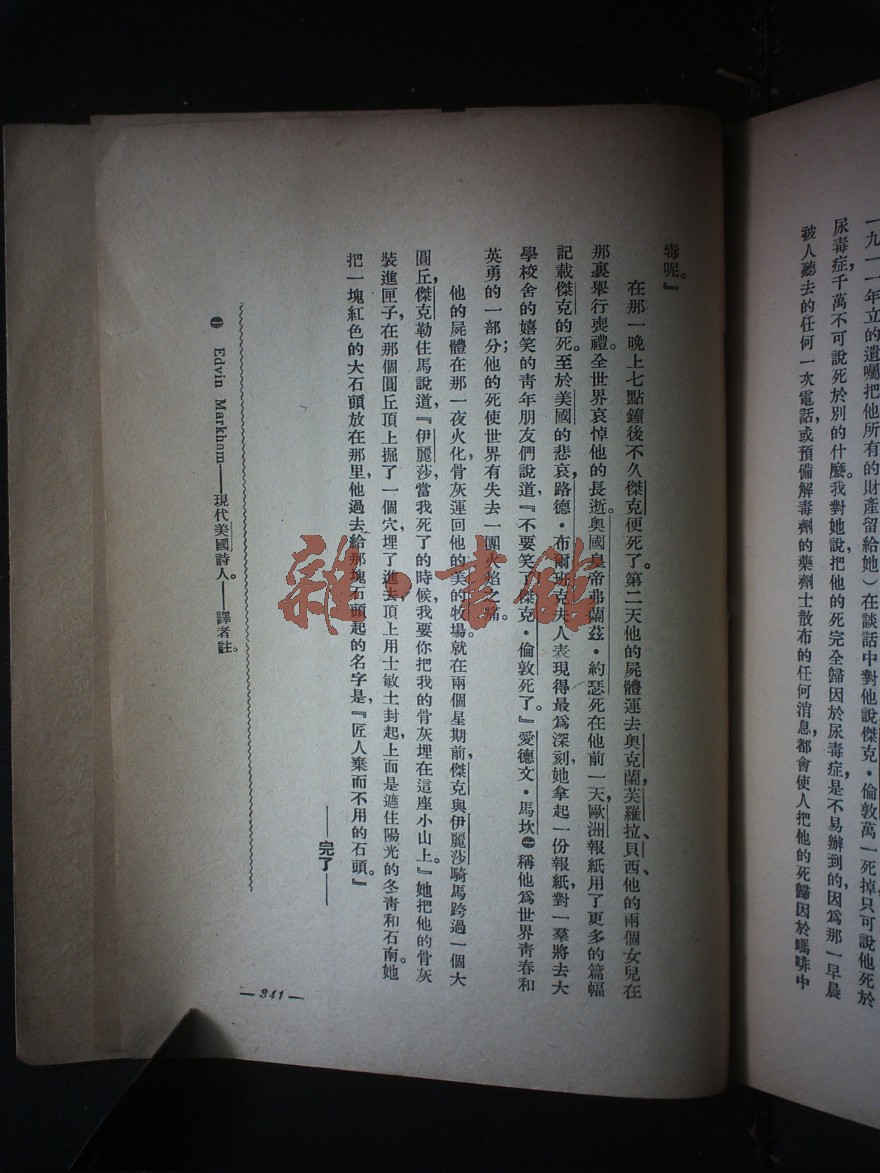 一九一一年立的遺囑把他所有的財產留給她）在談話中對他說傑克·倫敦萬一死掉，只可說他死於
尿毒症，千萬不可說死於別的什麼。我對她說，把他的死完全歸因於尿毒症是不易辦到的，因為那一早晨
被人聽去的任何一次電話，或預備解毒劑的藥劑士散布的任何消息，都會使人把他的死歸因於嗎啡中
毒呢。』
在那一晚上七點鐘後不久傑克便死了。第二天他的屍體運去奧克蘭，芙羅拉、貝西、他的兩個女兒在
那裏舉行喪禮。全世界哀悼他的長逝。奧國皇帝弗蘭茲·約瑟死在他前一天，歐洲報紙用了更多的篇幅
記載傑克的死。至於美國的悲哀，路德·布爾班克夫人表現得最為深刻，她拿起一份報紙，對一羣將去大
學校舍的嬉笑的青年朋友們說道，『不要笑了，傑克·倫敦死了。』愛德文·馬坎㊀稱他為世界青春和
英勇的一部分；他的死使世界有失去一團火焰之痛。
他的屍體在那一夜火化，骨灰運回他的美的牧場。就在兩個星期前，傑克與伊麗莎騎馬跨過一個大
圓丘，傑克勒住馬說道，『伊麗莎，當我死了的時候，我要你把我的骨灰埋在這座小山上。』她把他的骨灰
裝進匣子，在那個圓丘頂上掘了一個穴，埋了進去，頂上用士敏土封起。上面是遮住陽光的冬青和石南。她
把一塊紅色的大石頭放在那里，他過去給那塊石頭起的名字是，『匠人棄而不用的石頭。』
——完了——
㊀ Edvin Markham——現代美國詩人。——譯者註。
— 341 —
雜·書館